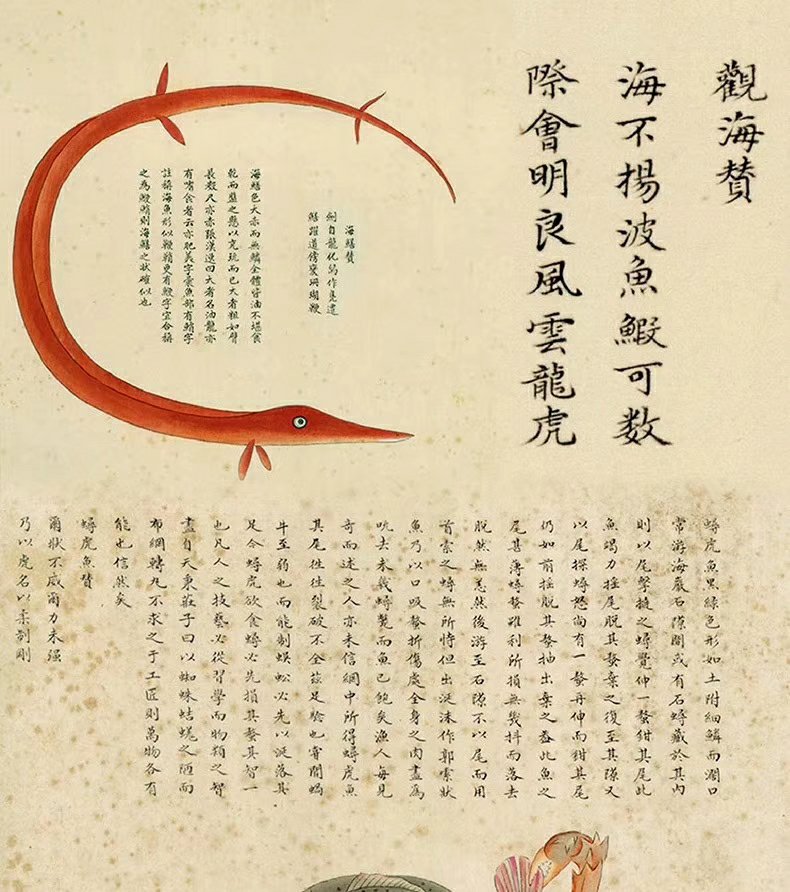 觀海贊
海不揚波魚鰕可数
際會明良風雲龍虎
海鱔贊
劍自龍化舄作鳧遺
鱔躍道傍變珊瑚鞭
海鱔色大赤而無鱗全體皆油不堪食
乾而盤之懸以充玩而已大者粗如臂
長數尺亦赤張漢逸曰大者名油龍亦
有嗜食者云亦肥美字彙魚部有鮹字
註稱海魚形似鞭鞘更有鯾字宜合稱
之為鯾鮹則海鱔之狀確似也
蟳虎魚黑綠色形如土附細鱗而濶口
常游海巖石隙間或有石蟳藏於其内
則以尾擊撻之蟳覺伸一螯鉗其尾此
魚竭力摇尾脱其螯棄之復至其隙又
以尾探蟳怒尚有一螯再伸而鉗其尾
仍如前摇脱其螯抽出棄之葢此魚之
尾甚薄蟳螯雖利所損無幾抖而落去
脱然無恙然後游至石隙不以尾而用
首索之蟳無所恃但出涎沫作郭索狀
魚乃以口吸螯折傷處全身之肉盡為
吮去未幾蟳斃而魚已飽矣漁人每見
奇而述之人亦未信網中所得蟳虎魚
其尾徃徃裂破不全兹足驗也嘗聞蝸
牛至弱也而能制蜈蚣必先以涎落其
足今蟳虎欲食蟳必先損其螯其智一
也凡人之技藝必從習學而物類之智
盡自天秉莊子曰以蜘蛛蛣蜣之陋而
布網轉丸不求之于工匠則萬物各有
能也信然矣
蟳虎魚贊
爾狀不威爾力未强
乃以虎名以柔制剛